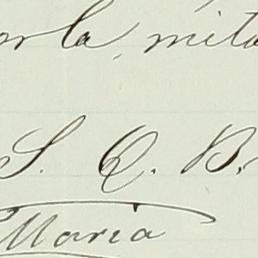 or la mita
S. Q. B.
Maria